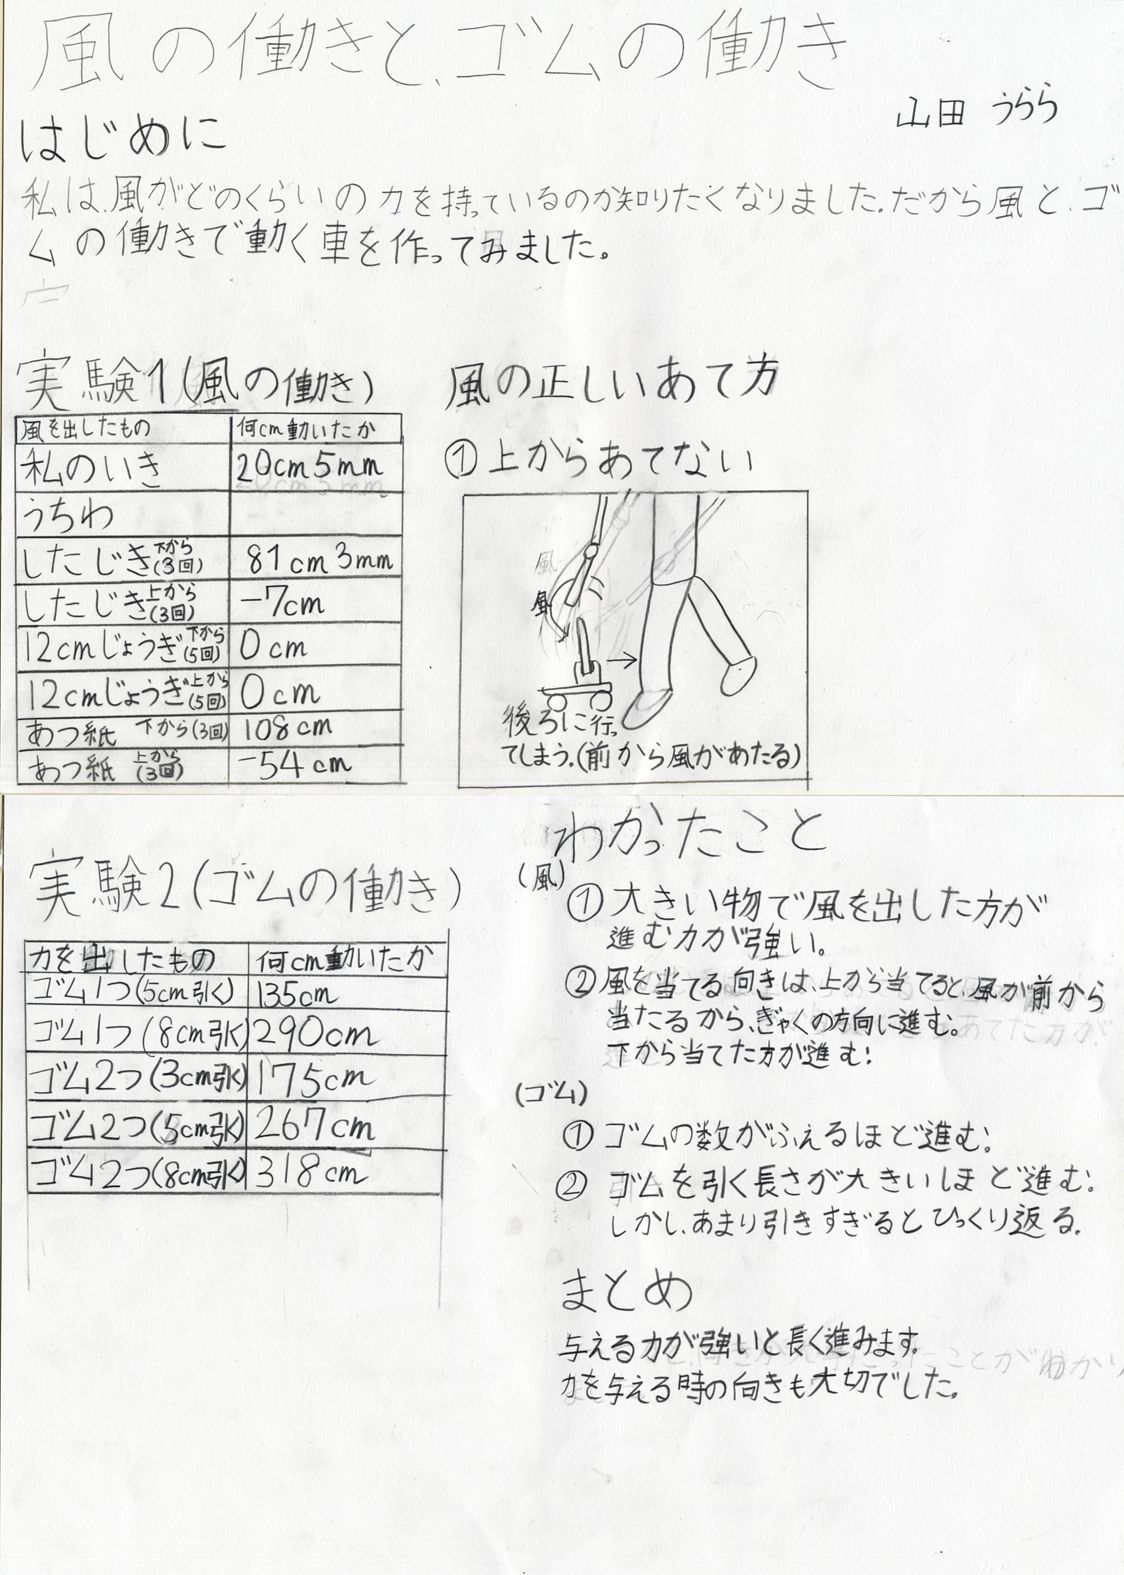 風の働きと、ゴムの働き
山田 うらら
はじめに
私は、風がどのくらいの力を持っているのか知りたくなりました。だから風と、ゴ
ムの働きで動く車を作ってみました。
実験1(風の働き)
風を出したもの 何cm動いたか
私のいき 20cm5mm
うちわ
したじき下から(3回) 81cm3mm
したじき上から(3回) -7cm
12cmじょうぎ下から(5回) 0cm
12cmじょうぎ上から(5回) 0cm
あつ紙 下から(3回) 108cm
あつ紙 上から(3回) -54cm
風の正しいあて方
①上からあてない
風
風
後ろに行っ
てしまう。(前から風があたる)
実験2(ゴムの働き)
力を出したもの 何cm動いたか
ゴム1つ(5cm引く) 135cm
ゴム1つ(8cm引く) 290cm
ゴム2つ(3cm引く) 175cm
ゴム2つ(5cm引く) 267cm
ゴム2つ(8cm引く) 318cm
わかったこと
(風)
①大きい物で風を出した方が
進む力が強い。
②風を当てる向きは、上から当てると、風が前から
当たるから、ぎゃくの方向に進む。
下から当てた方が進む!
(ゴム)
①ゴムの数がふえるほど進む!
②ゴムを引く長さが大きいほど進む!
しかし、あまり引きすぎるとひっくり返る。
まとめ
与える力が強いと長く進みます。
力を与える時の向きも大切でした。